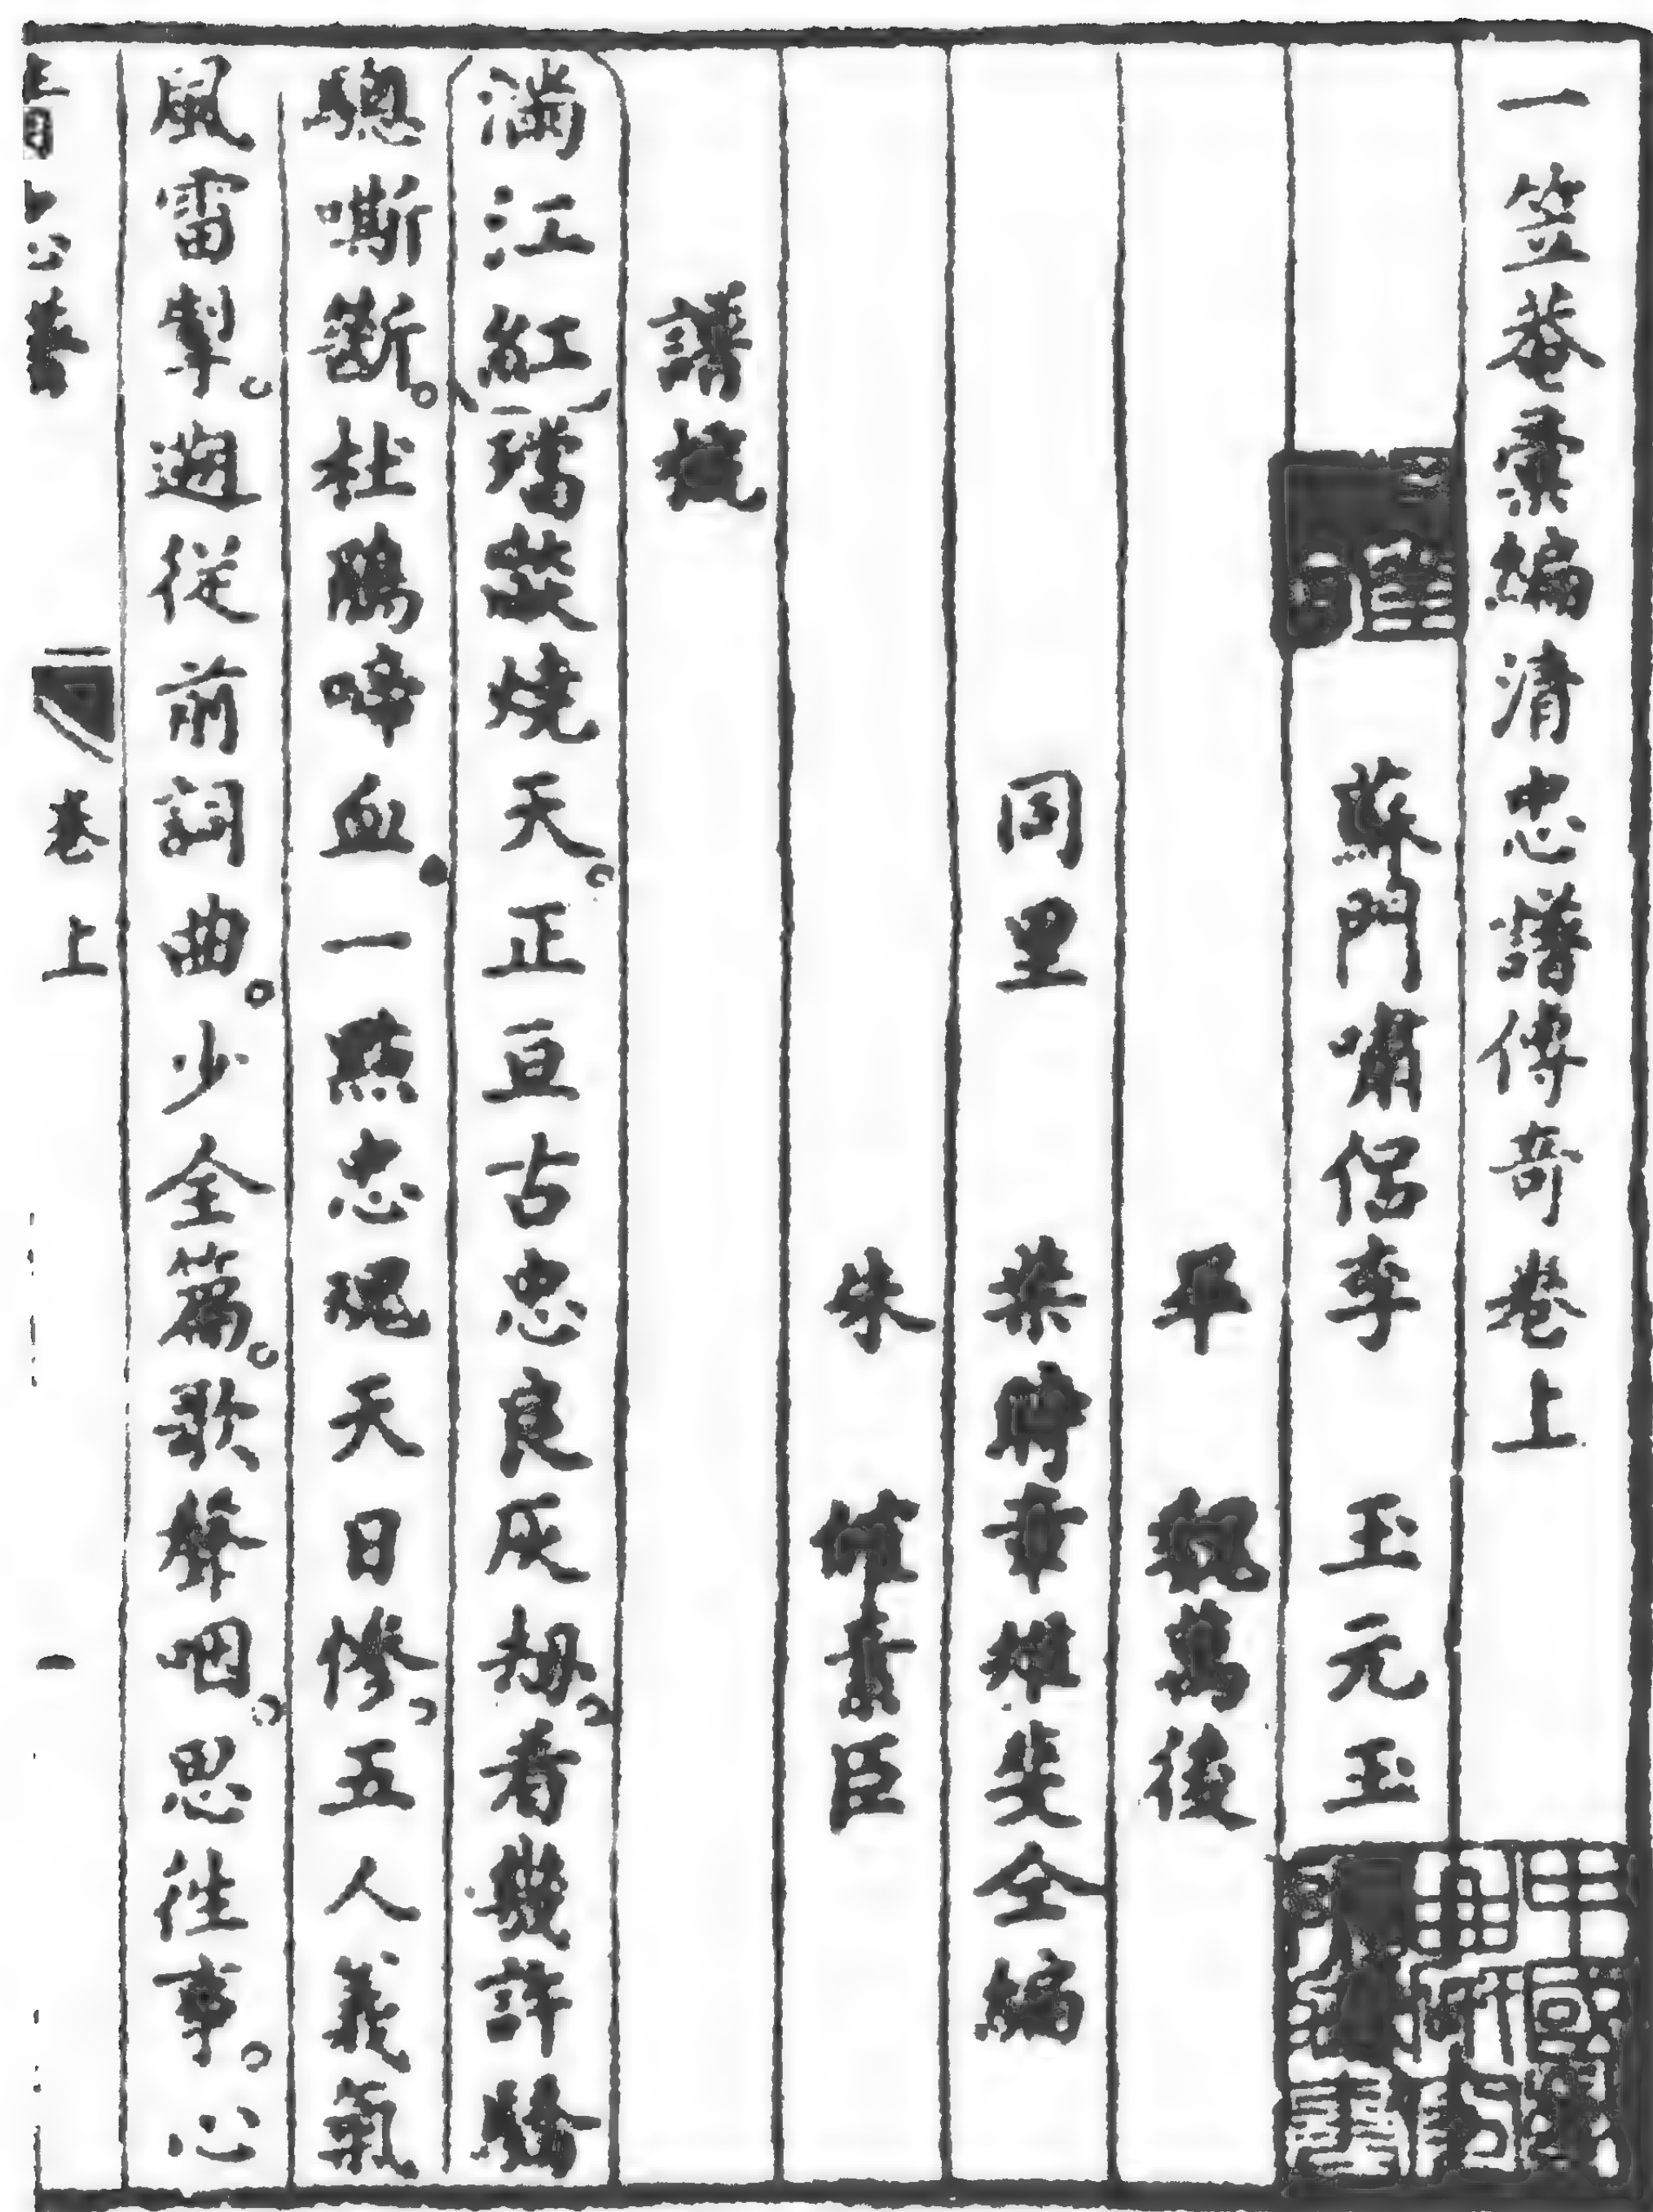 一笠菴彙編清忠譜傳奇卷上
蘇門嘯侶李 玉元玉
畢 魏萬後
同里 葉時章雉斐仝編
朱 㿥素臣
譜概
滿江紅璫燄燒天正亘古忠良灰刼看幾許驕
驄嘶斷杜鵑啼血一點忠魂天日慘五人義氣
風雷掣遡從前詞曲少全篇歌聲咽思往事心
卷上